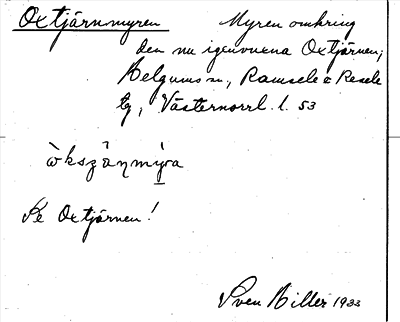 Oxtjärnmyren Myren omkring
den nu igenvuxna Oxtjärnen;
Helgums sn., Ramsele o Resele
tg, Västernorrl. l. 53
òkszàn̥mỳra
Se Oxtjärnen!
Sven Hiller 1933